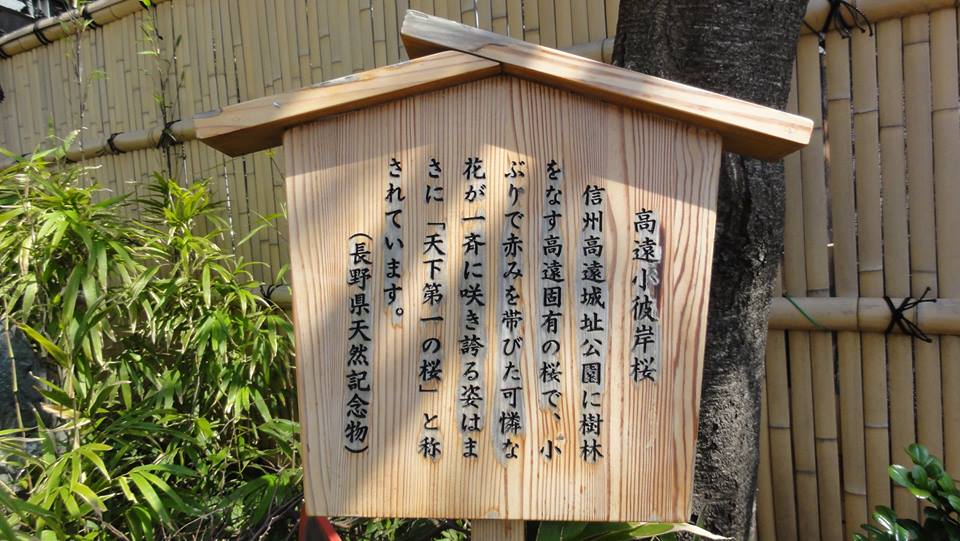 高遠小彼岸桜
信州高遠城址公園に樹林
をなす高遠固有の桜で、小
ぶりで赤みを帯びた可憐な
花が一斉に咲き誇る姿はま
さに「天下第一の桜」と称
されています。
（長野県天然記念物）